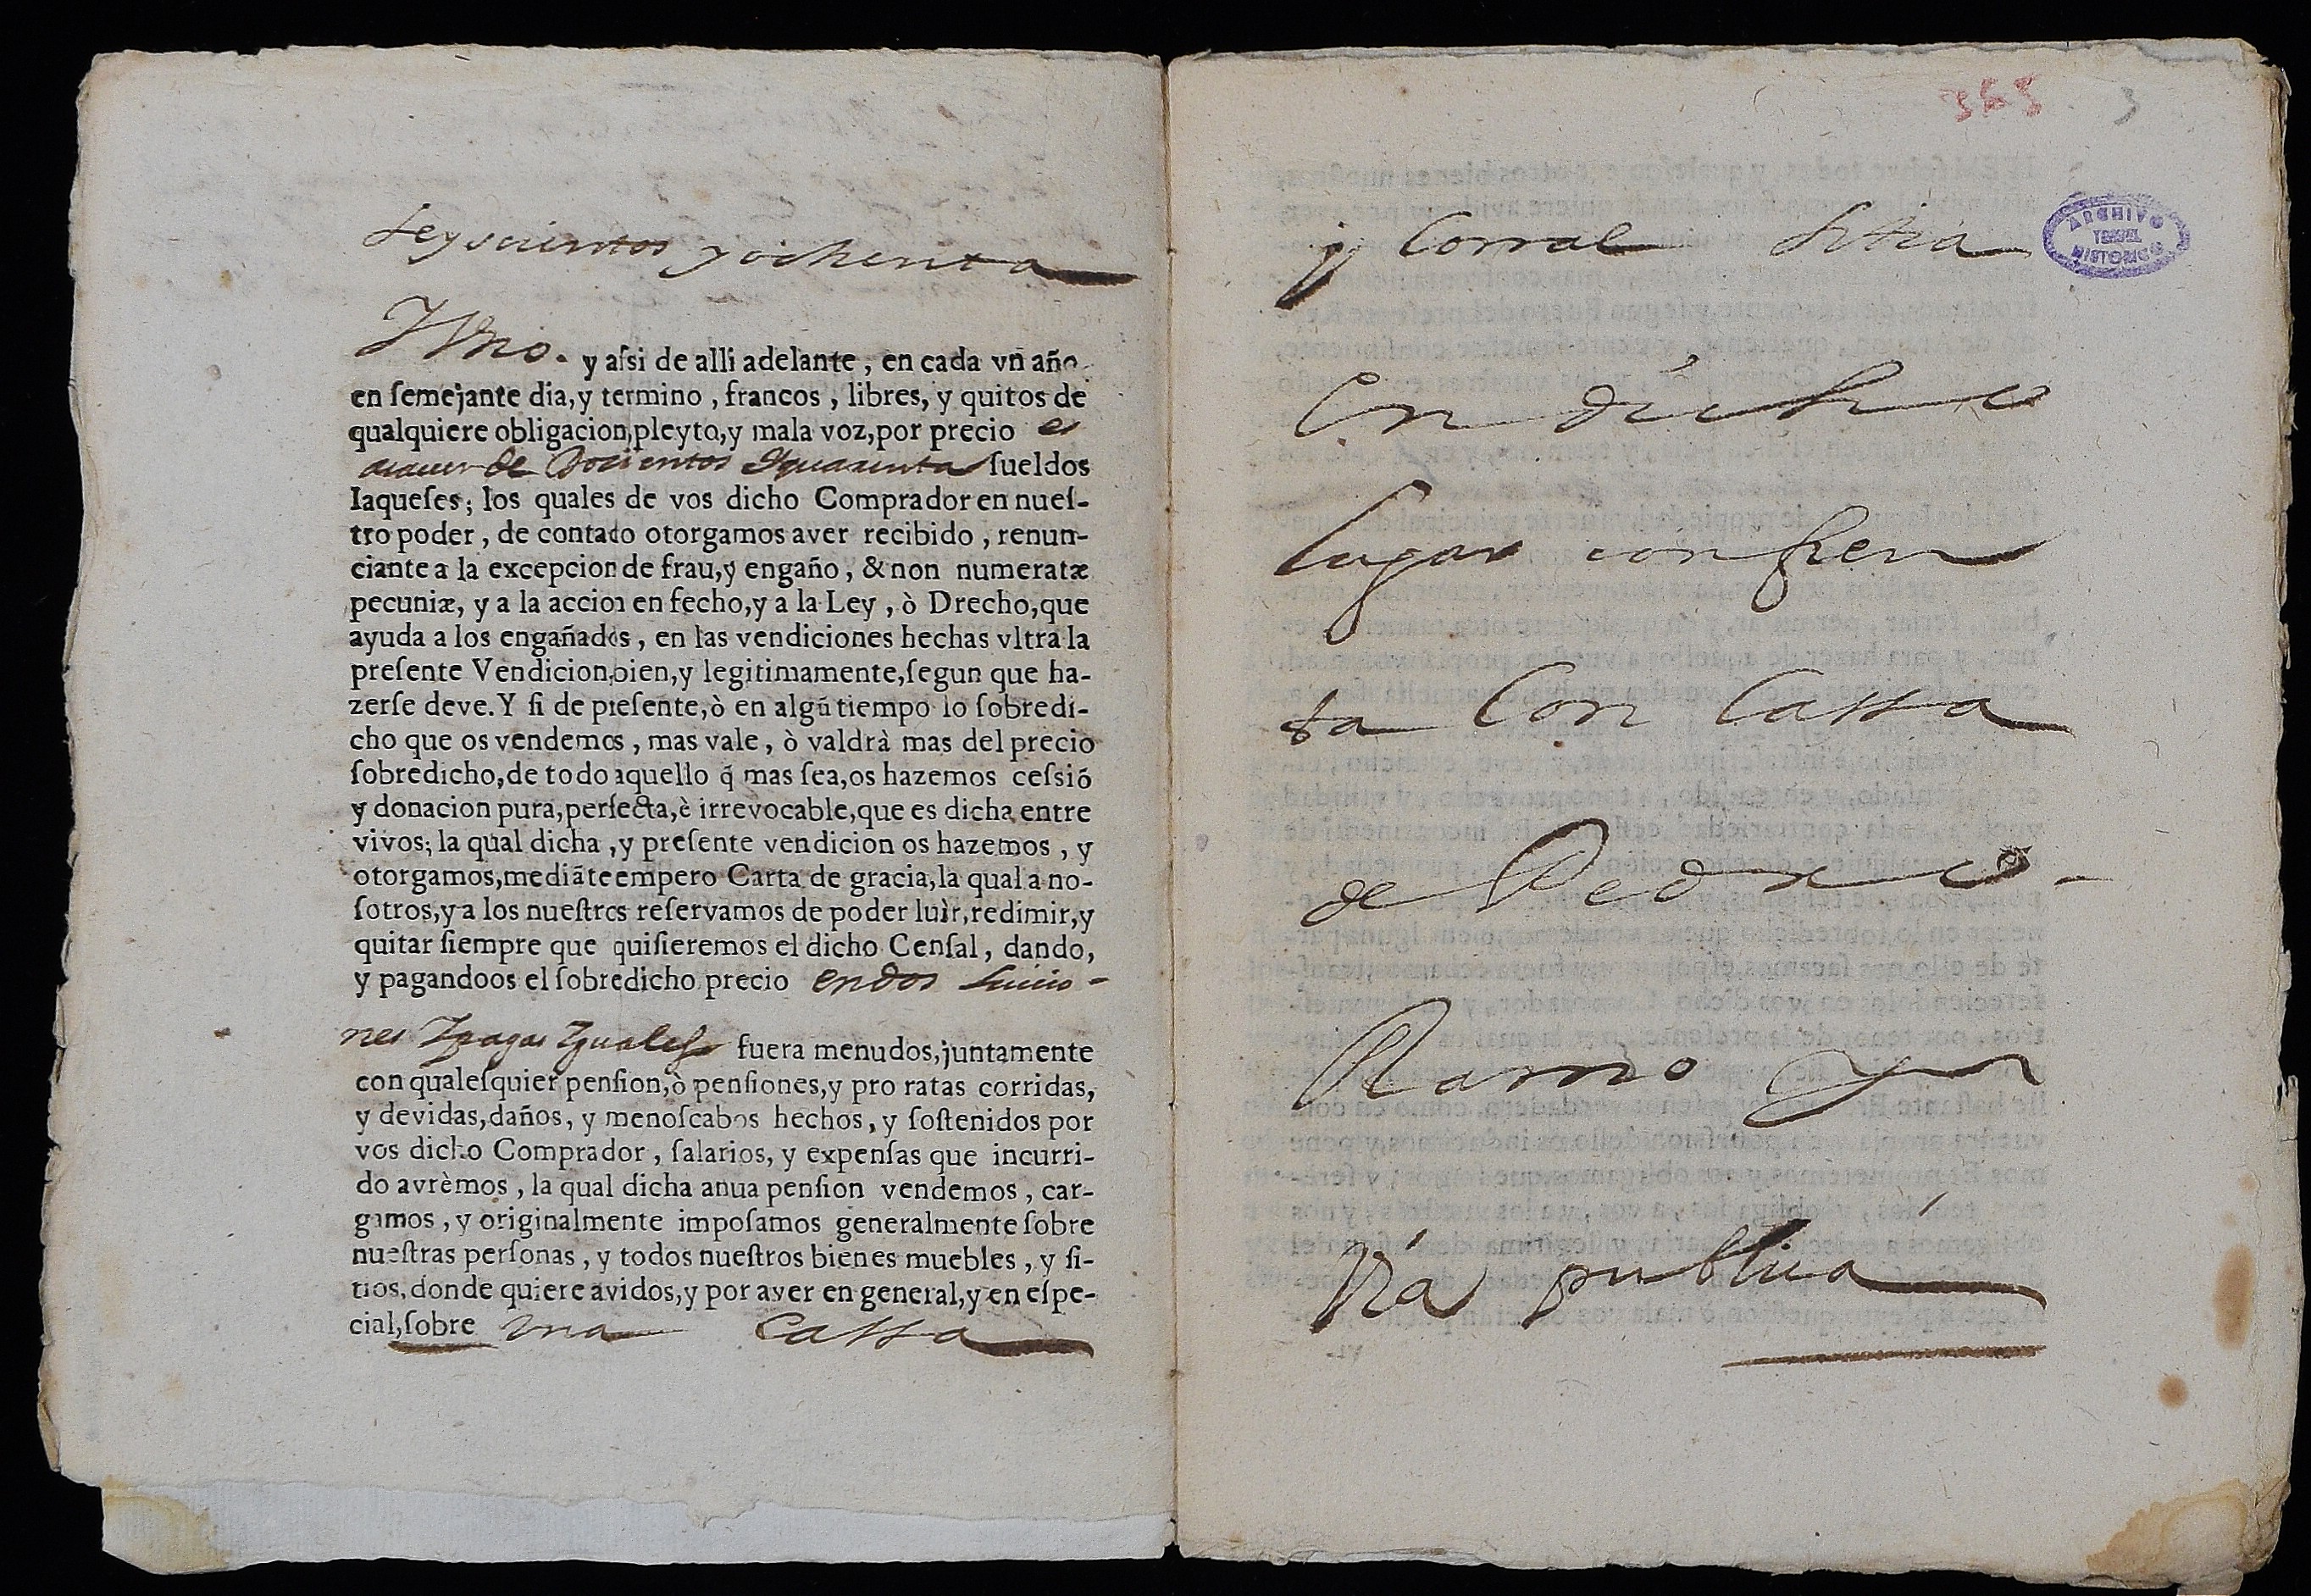 seyscientos y ochenta
Y Vno. y aſsi de alli adelante, en cada vn año
en ſemejante dia, y termino, francos, libres, y quitos de
qualquiere obligacion, pleyto, y mala voz, por precio es
de Docientos Yquarenta ſueldos
Iaqueſes; los quales de vos dicho Comprador en nueſ-
tro poder, de contado otorgamos aver recibido, renun-
ciante a la excepcion de frau, y engaño, & non numeratæ
pecuniæ, y a la accion en fecho, y a la Ley, ò Drecho, que
ayuda a los engañados, en las vendiciones hechas vltra la
preſente Vendicion bien, y legitimamente, ſegun que ha-
zerſe deve. Y ſi de preſente, ò en algũ tiempo lo ſobredi-
cho que os vendemos, mas vale, ò valdrà mas del precio
ſobredicho, de todo aquello q̃ mas ſea, os hazemos ceſsiõ
y donacion pura, perfecta, è irrevocable, que es dicha entre
vivos; la qual dicha, y preſente vendicion os hazemos, y
otorgamos, mediãte empero Carta de gracia, la qual a no-
ſotros, y a los nueſtros reſervamos de poder luìr, redimir, y
quitar ſiempre que quiſieremos el dicho Cenſal, dando,
y pagandoos el ſobredicho precio en dos luicio-
nes Ypagas Yguales fuera menudos, juntamente
con qualeſquier penſion, ò penſiones, y pro ratas corridas,
y devidas, daños, y menoſcabos hechos, y ſoſtenidos por
vos dicho Comprador, ſalarios, y expenſas que incurri-
do avrèmos, la qual dicha anua penſion vendemos, car-
gamos, y originalmente impoſamos generalmente ſobre
nueſtras perſonas, y todos nueſtros bienes muebles, y ſi-
tios, donde quiere avidos, y por aver en general, y en eſpe-
cial, ſobre vna Cassa
363 3
ARCHIVO
TERUEL
HISTORICO
y Corral sitia
En dicho
lugar confren
ta Con Cassa
de Pedro
Ramo y con
Via publica